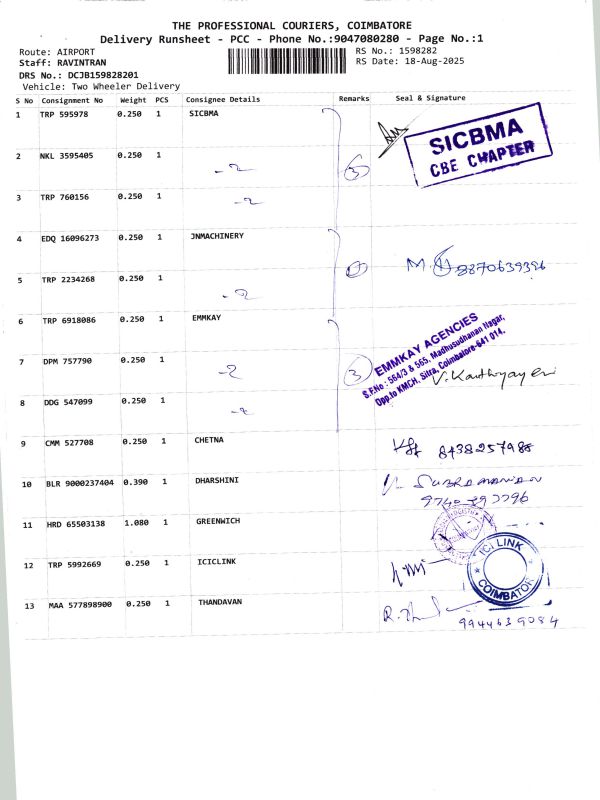 THE PROFESSIONAL COURIERS, COIMBATORE
Delivery Runsheet - PCC - Phone No.:9047080280 - Page No.:1
Route: AIRPORT RS No.: 1598282
Staff: RAVINTRAN RS Date: 18-Aug-2025
DRS No.: DCJB159828201
Vehicle: Two Wheeler Delivery
S No Consignment No Weight PCS Consignee Details Remarks Seal & Signature
1 TRP 595978 0.250 1 SICBMA
SICBMA
CBE CHAPTER
2 NKL 3595405 0.250 1
3 TRP 760156 0.250 1
4 EDQ 16096273 0.250 1 JNMACHINERY
8870639396
5 TRP 2234268 0.250 1
6 TRP 6918086 0.250 1 EMMKAY
EMMKAY AGENCIES
S.F.No : 564/3 & 565, Madhusudhanan Nagar,
Opp.to KMCH, Sitra, Coimbatore-641 014.
7 DPM 757790 0.250 1 3
V. Kauthyayeni
8 DDG 547099 0.250 1
9 CMM 527708 0.250 1 CHETNA 8438257988
10 BLR 9000237404 0.390 1 DHARSHINI SUBRAMANIAN
11 HRD 65503138 1.080 1 GREENWICH
12 TRP 5992669 0.250 1 ICICLINK
ICI LINK
COIMBATORE
13 MAA 577898900 0.250 1 THANDAVAN
9944639084